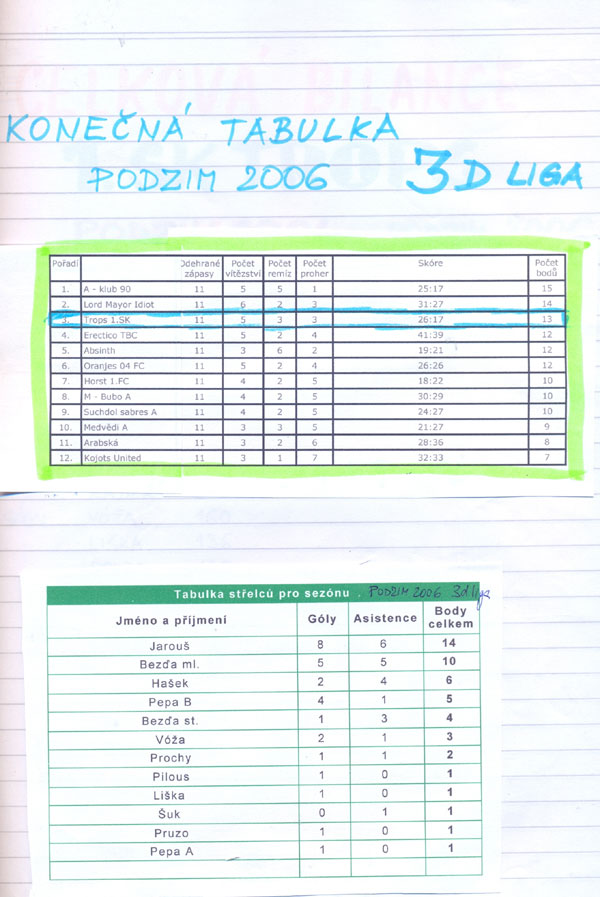 KONEČNÁ TABULKA
PODZIM 2006 3D LIGA
Pořadí Odehrané zápasy Počet vítězství Počet remíz Počet proher Skóre Počet bodů
1. A - klub 90 11 5 5 1 25:17 15
2. Lord Mayor Idiot 11 6 2 3 31:27 14
3. Trops 1.SK 11 5 3 3 26:17 13
4. Erectico TBC 11 5 2 4 41:39 12
5. Absinth 11 3 6 2 19:21 12
6. Oranjes 04 FC 11 5 2 4 26:26 12
7. Horst 1.FC 11 4 2 5 18:22 10
8. M - Bubo A 11 4 2 5 30:29 10
9. Suchdol sabres A 11 4 2 5 24:27 10
10. Medvědi A 11 3 3 5 21:27 9
11. Arabská 11 3 2 6 28:36 8
12. Kojots United 11 3 1 7 32:33 7
Tabulka střelců pro sezónu . PODZIM 2006 3d liga
Jméno a příjmení Góly Asistence Body celkem
Jarouš 8 6 14
Bezďa ml. 5 5 10
Hašek 2 4 6
Pepa B 4 1 5
Bezďa st. 1 3 4
Vóža 2 1 3
Prochy 1 1 2
Pilous 1 0 1
Liška 1 0 1
Šuk 0 1 1
Pruzo 1 0 1
Pepa A 1 0 1